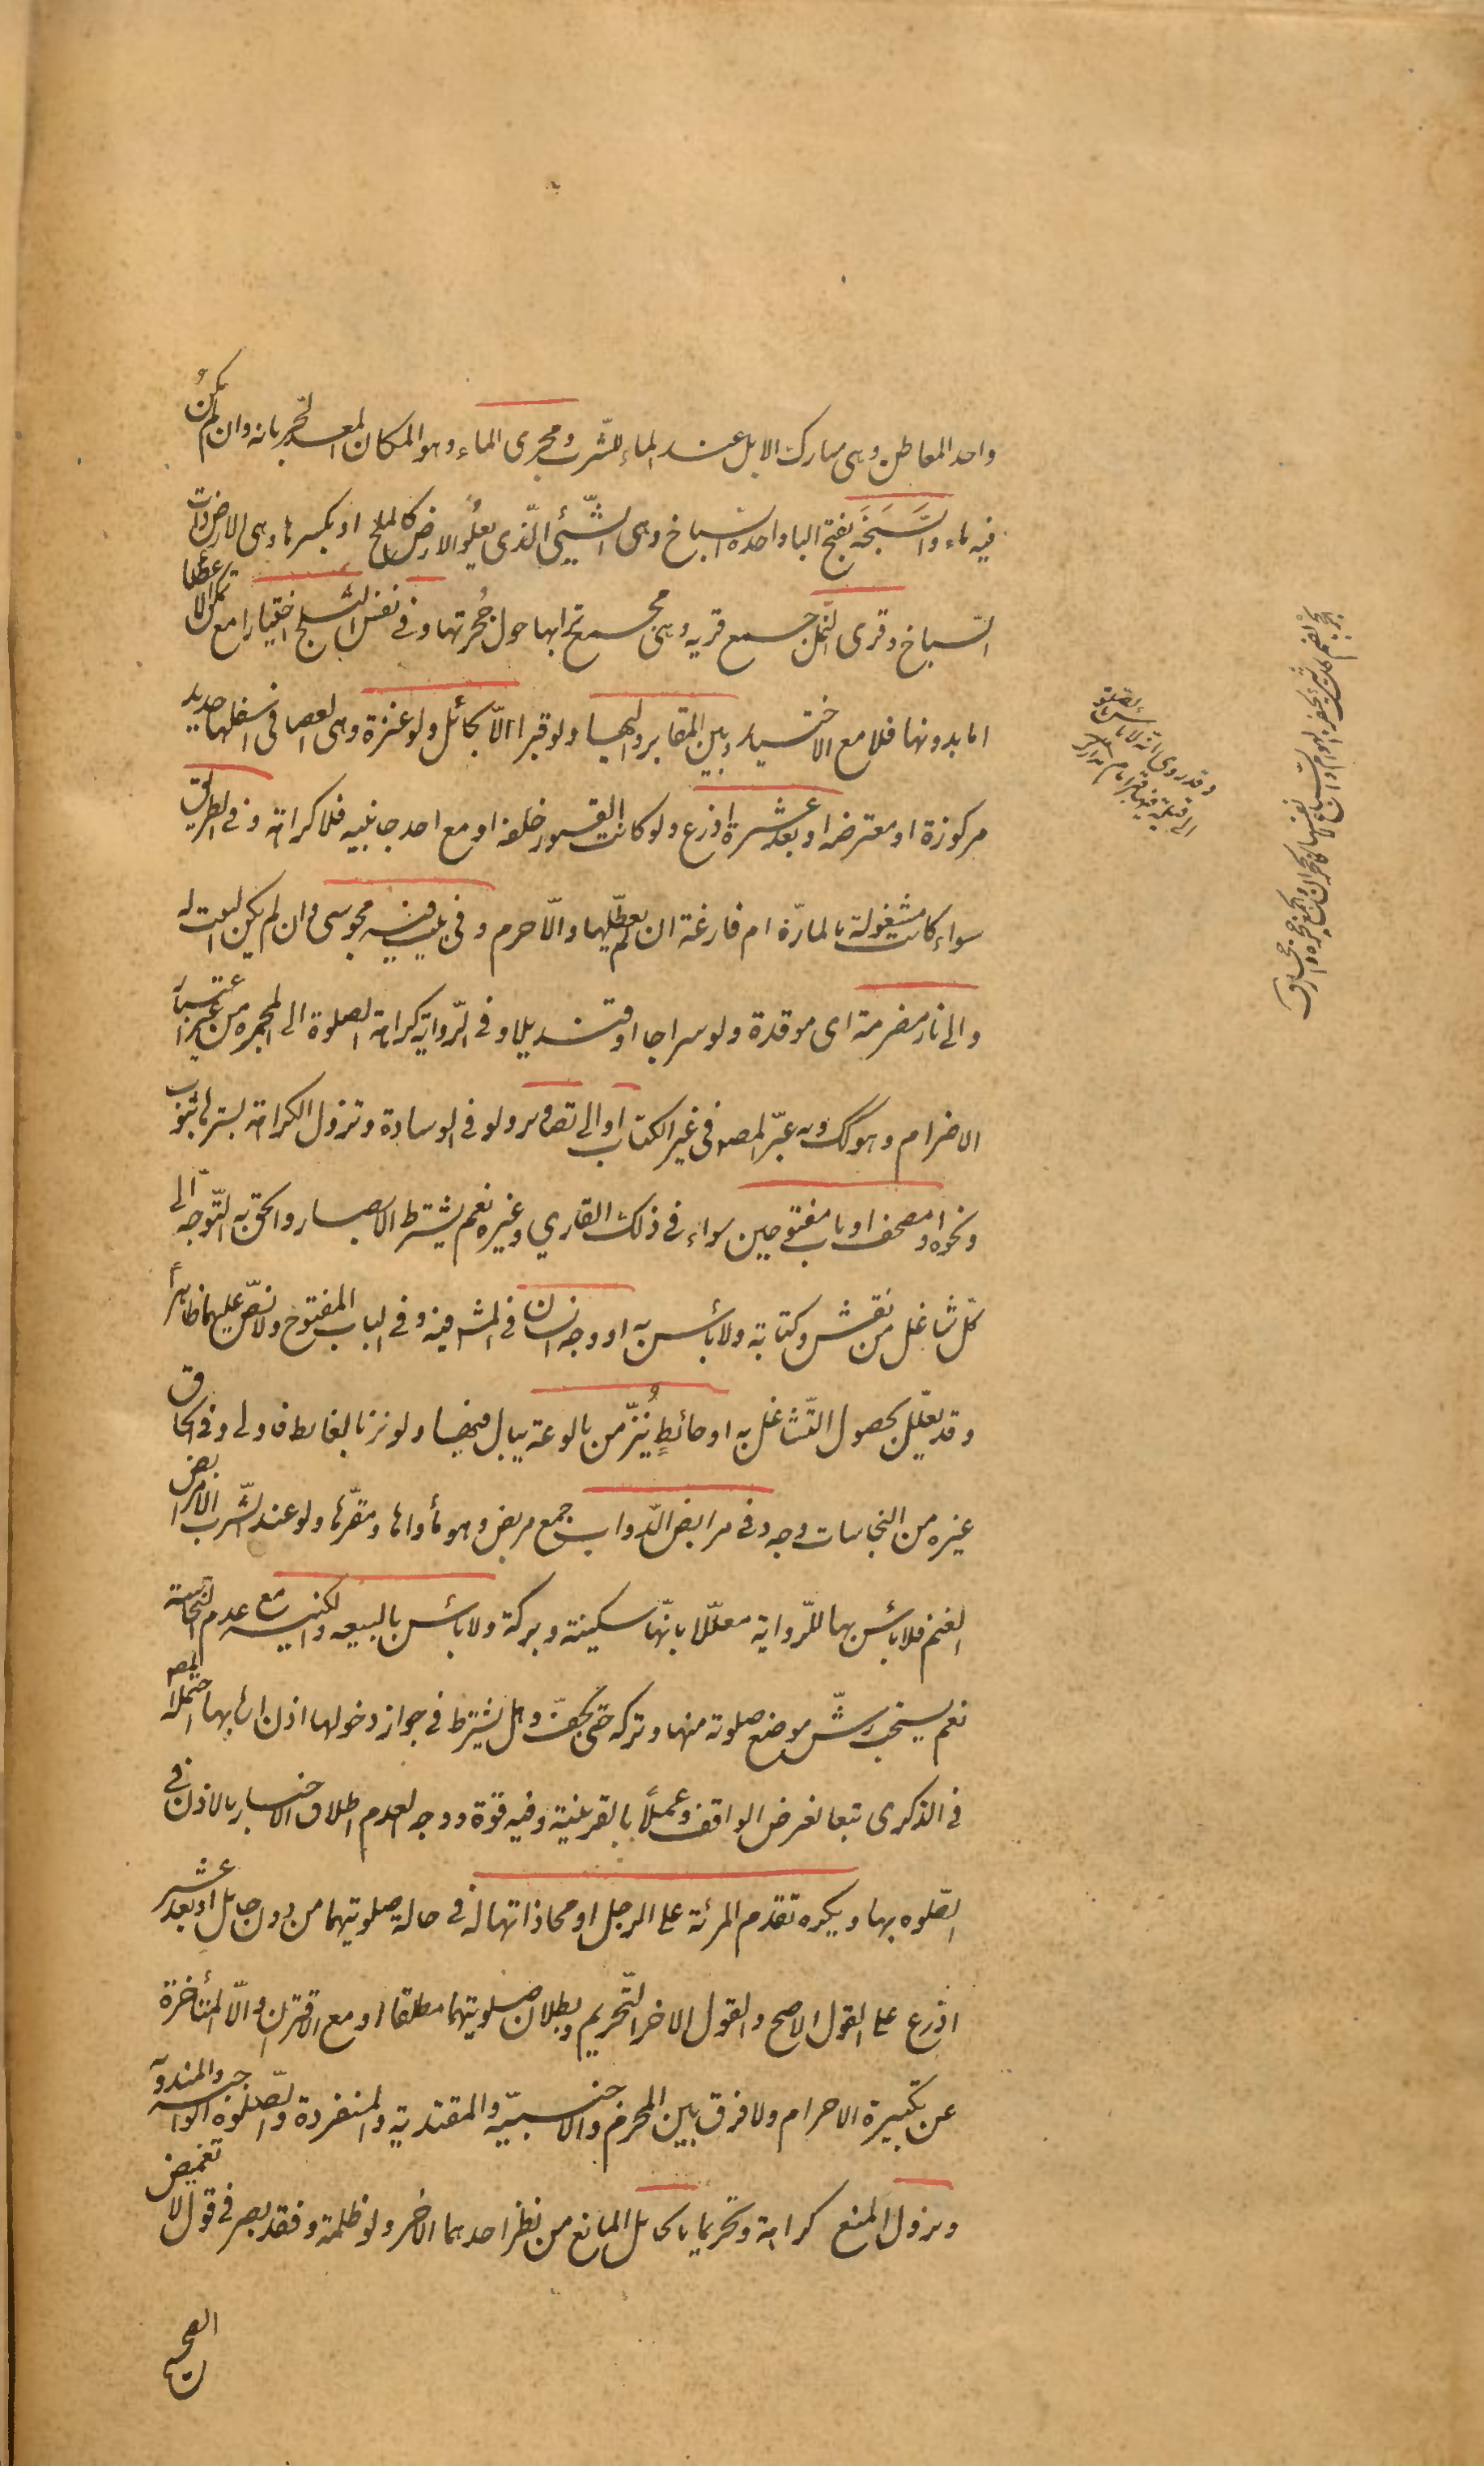 واحد المعاطن وهى مبارك الابل عند الماء للشّرب ومجرى الماء وهو المكان المعد لجريانه وان لم يكن
فيه ماء والسَّبَخَة بفتح الباء واحدة السباخ وهى الشّيئى الّذى يعلُو الارض كالملح او بكسرها وهى الارض ذات
السّباخ وقرى النّمل جمع قريه وهى مجمع ترابها حول جُحرتها وفى نفس الثلج اختيارا مع تمكن الاعضا
اما بدونها فلا مع الاختيار وبين المقابر واليها ولو قبرا الاّ بحائل ولو عنزة وهى العصا فى اسفلها حديد
مركوزة او معترضه او بعد عشرة اذرع ولو كانت القبور خلفه او مع احد جانبيه فلا كراهة وفى الطريق
سواء كانت مشغولة بالمارّة ام فارغة ان لم يعطّلها والاّ حرم وفى بيت فيه مجوسى وان لم يكن البيت له
والى نار مضرمة اى موقدة ولو سراجا او قنديلا وفى الرّواية كراهة الصلوة الى المجمره من غير اعتبار
الاضرام وهو كك وبه عبّر المصه فى غير الكتاب او الى تصاوير ولو فى الوسادة وتزول الكراهة بسترها بثوب
ونحوه او مصحف او باب مفتوحين سواء فى ذلك القاري وغيره نعم يشترط الابصار والحق به التّوجه الى
كلّ شاغل من نقش وكتابة ولا بأس به او وجه انسان فى المشه فيه وفى الباب المفتوح ولا نصّ عليهما ظاهراً
وقد يعلّل بحصول التّشاغل به او حائطٍ يُنزّ من بالوعة يبال فيها ولو نز بالغايط فاولى وفى الحاق
غيره من النجاسات وجه وفى مرابض الدّواب جمع مربض وهو مأواها ومقرّها ولو عند الشّرب الا مرابض
الغنم فلا بأس بها للرّواية معلّلا بانّها سكينة وبركة ولا بأس بالبيعه والكنيسه مع عدم النجاسة
نعم يستحب رشّ موضع صلوته منها وتركه حتى يجفّ وهل يشترط فى جواز دخولها اذن اربابها احتمله المصه
فى الذكرى تبعا لغرض الواقف وعملاً بالقرينة وفيه قوّة ووجه العدم اطلاق الاخبار بالاذن فى
الصّلوه بها ويكره تقدم المرئة على الرجل او محاذاتها له فى حالة صلوتيهما من دون حايل او بعد عشر
اذرع على القول الاصح والقول الاخر التّحريم وبطلان صلوتيهما مطلقا او مع الاقتران والاّ المتأخرة
عن تكبيرة الاحرام ولا فرق بين المحرم والاجنبيّه والمقتدية والمنفردة والصّلوة الواجبة والمندوبة
ويزول المنع كراهة وتحريما بالحايل المانع من نظر احدهما الاخر ولو ظلمة وفقد بصر فى قول لا تغميض
الصحيح
وقد روى انه لا بأس بالصلوة